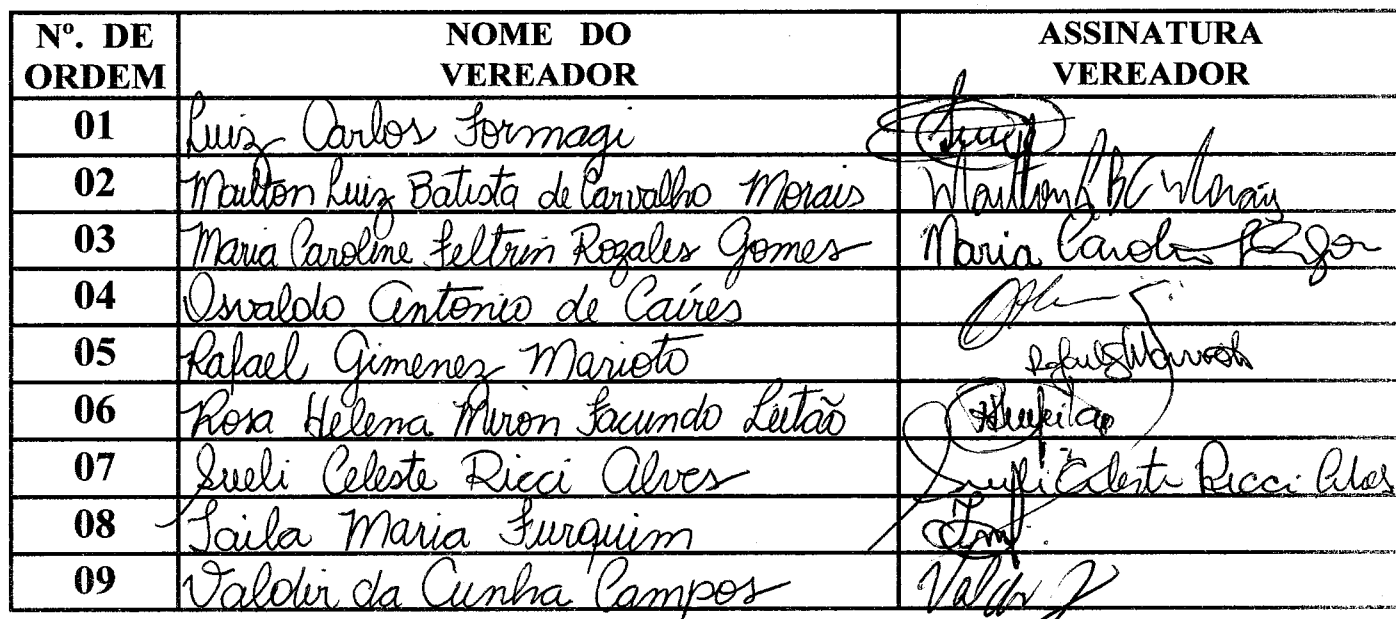 Nº. DE ORDEM NOME DO VEREADOR ASSINATURA VEREADOR
01 Luiz Carlos Formagi
02 Mailton Luiz Batista de Carvalho Morais Mailton L B C Morais
03 Maria Caroline Feltrin Rozales Gomes Maria Carol
04 Osvaldo Antonio de Caíres
05 Rafael Gimenez Marioto
06 Rosa Helena Miron Facundo Leitão
07 Sueli Celeste Ricci Alves Sueli Celeste Ricci Alves
08 Taila Maria Furquim
09 Valdir da Cunha Campos Valdir